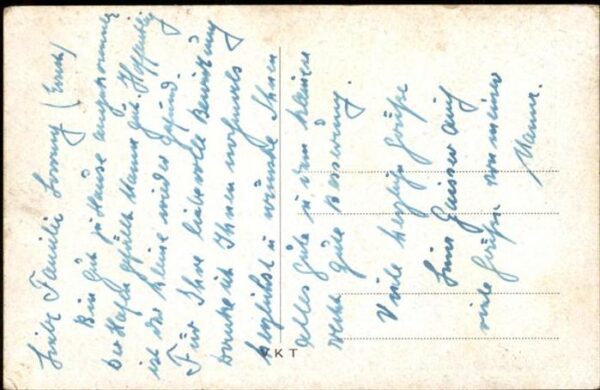 Liebe Familie
Bin gut zu Hause angekommen
der Hafen gefällt Mama gut. Hoffentlich
ist der kleine wieder gesund.
Für Ihre liebevolle Bewirtung
danke ich Ihnen nochmals
herzlichst u. wünsche Ihnen
alles gute u. dem kleinen
recht gute Besserung.
Viele herzliche Grüße
auch
viele Grüße von meiner
Mama.
VKT